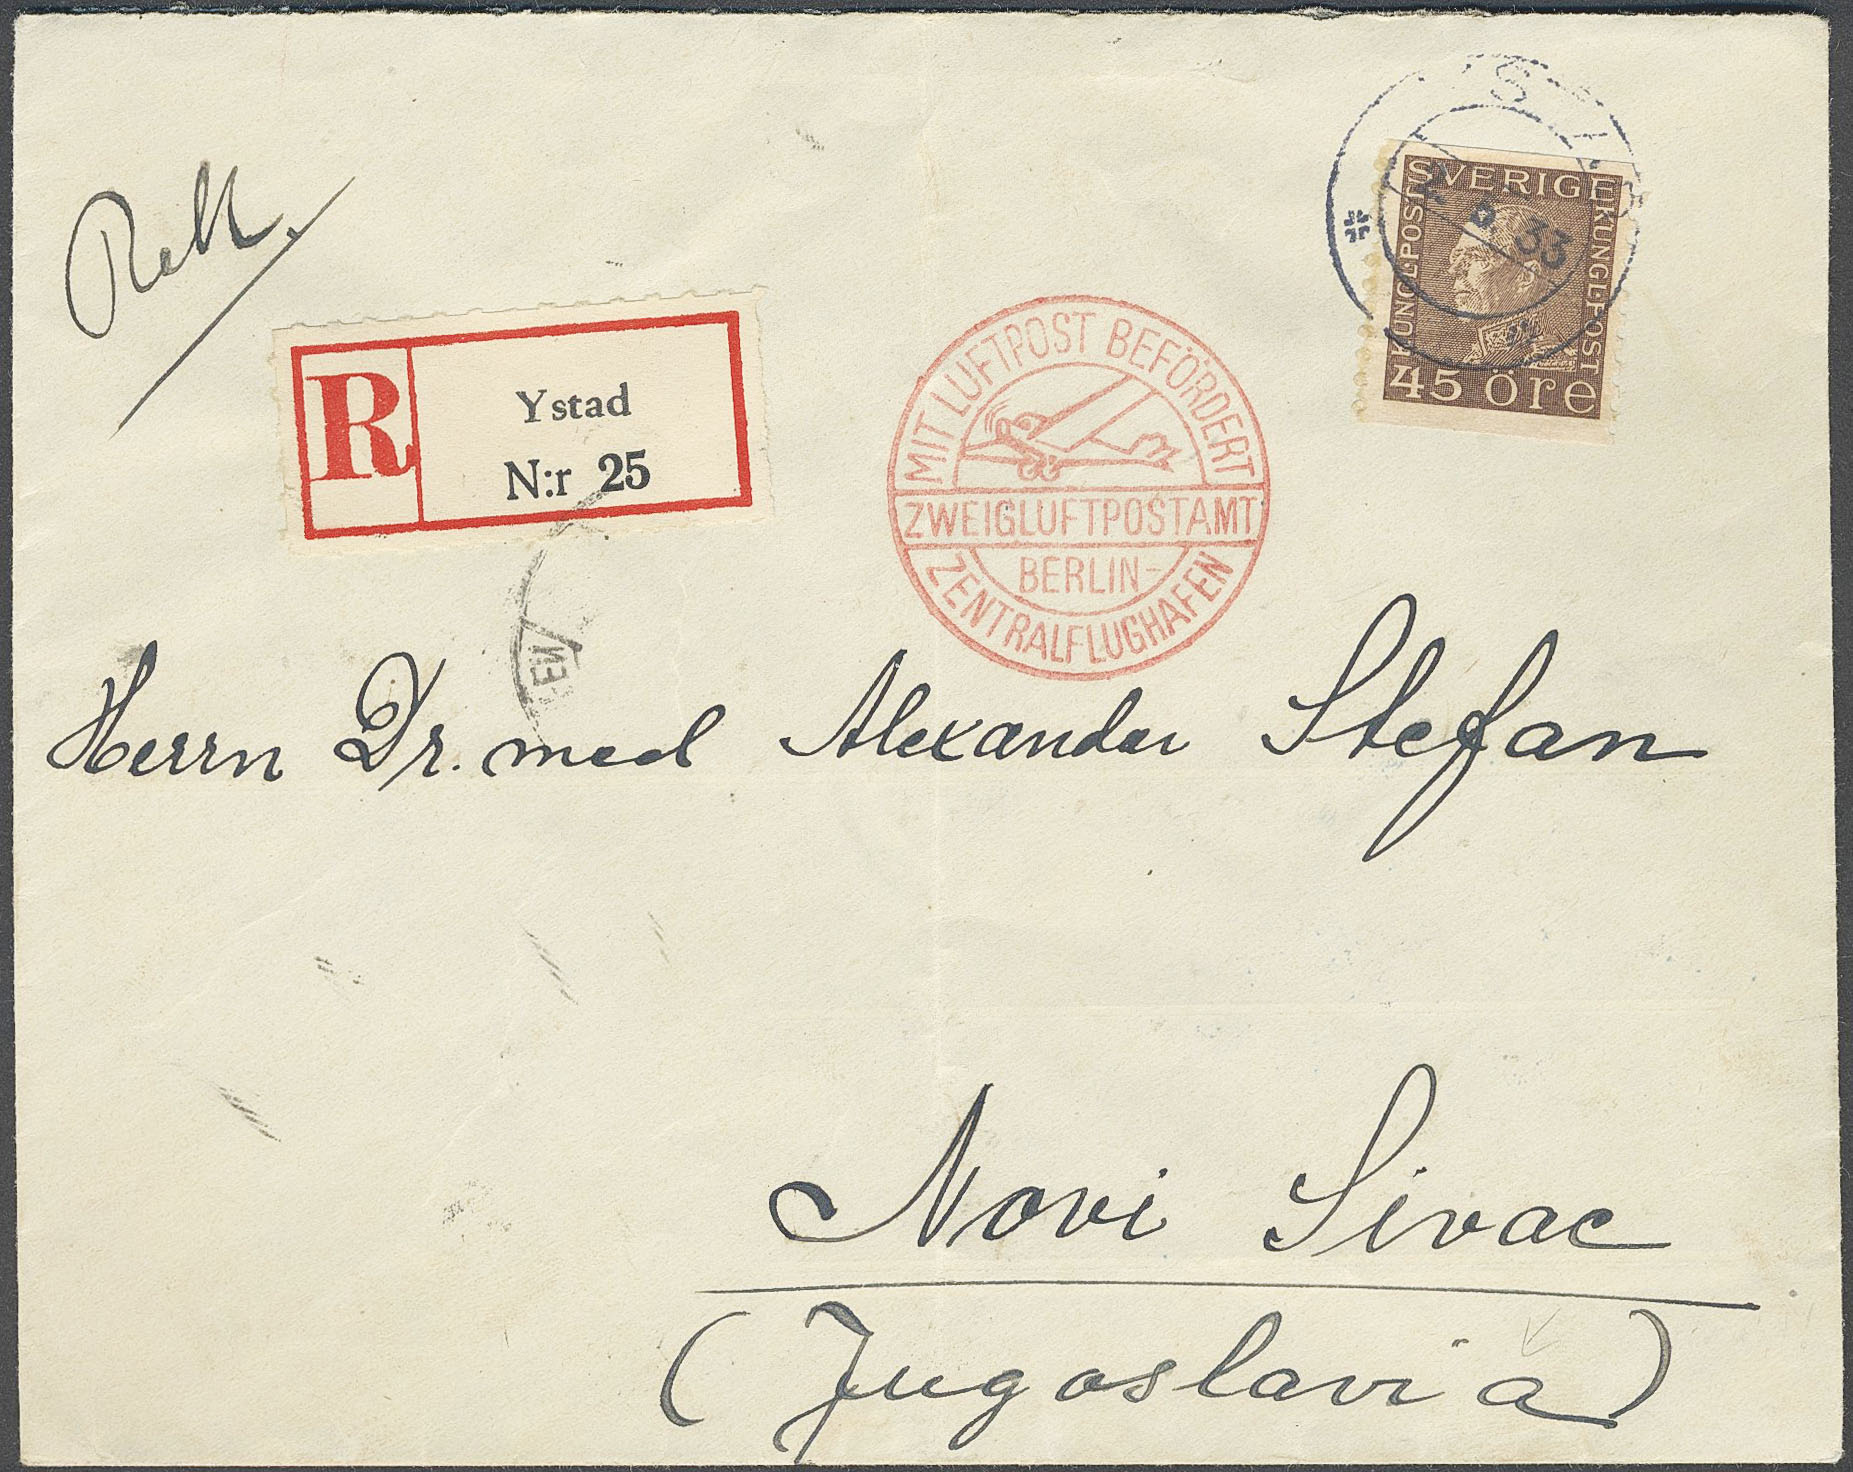 Rek.
R
Ystad
N:r 25
MIT LUFTPOST BEFÖRDERT
ZWEIGLUFTPOSTAMT
BERLIN-
ZENTRALFLUGHAFEN
SVERIGE
KUNGL·POST
KUNGL·POST
45 öre
33
Herrn Dr. med Alexander Stefan
Novi Sivac
(Jugoslavia)